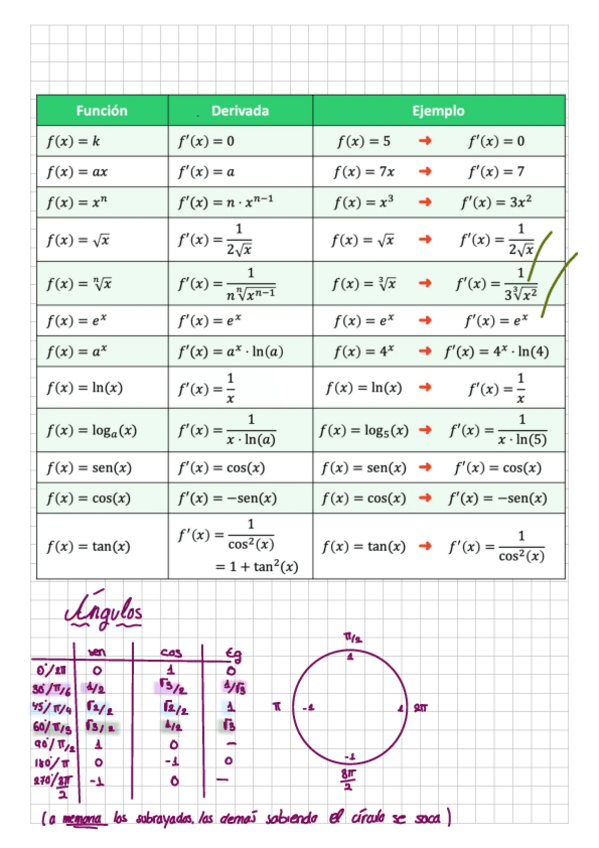 Función Derivada Ejemplo
f(x) = k f′(x) = 0 f(x) = 5 ➜ f′(x) = 0
f(x) = ax f′(x) = a f(x) = 7x ➜ f′(x) = 7
f(x) = xⁿ f′(x) = n · xⁿ⁻¹ f(x) = x³ ➜ f′(x) = 3x²
f(x) = √x f′(x) = 1/(2√x) f(x) = √x ➜ f′(x) = 1/(2√x)
f(x) = ⁿ√x f′(x) = 1/(n ⁿ√(xⁿ⁻¹)) f(x) = ³√x ➜ f′(x) = 1/(3 ³√(x²))
f(x) = eˣ f′(x) = eˣ f(x) = eˣ ➜ f′(x) = eˣ
f(x) = aˣ f′(x) = aˣ · ln(a) f(x) = 4ˣ ➜ f′(x) = 4ˣ · ln(4)
f(x) = ln(x) f′(x) = 1/x f(x) = ln(x) ➜ f′(x) = 1/x
f(x) = logₐ(x) f′(x) = 1/(x · ln(a)) f(x) = log₅(x) ➜ f′(x) = 1/(x · ln(5))
f(x) = sen(x) f′(x) = cos(x) f(x) = sen(x) ➜ f′(x) = cos(x)
f(x) = cos(x) f′(x) = −sen(x) f(x) = cos(x) ➜ f′(x) = −sen(x)
f(x) = tan(x) f′(x) = 1/cos²(x) = 1 + tan²(x) f(x) = tan(x) ➜ f′(x) = 1/cos²(x)
Ángulos
sen cos tg
0°/2π 0 1 0
30°/π/6 1/2 √3/2 1/√3
45°/π/4 √2/2 √2/2 1
60°/π/3 √3/2 1/2 √3
90°/π/2 1 0 –
180°/π 0 -1 0
270°/3π/2 -1 0 –
π/2
1
π -1 1 2π
-1
3π/2
(a memoria los subrayados, los demás sabiendo el círculo se saca)